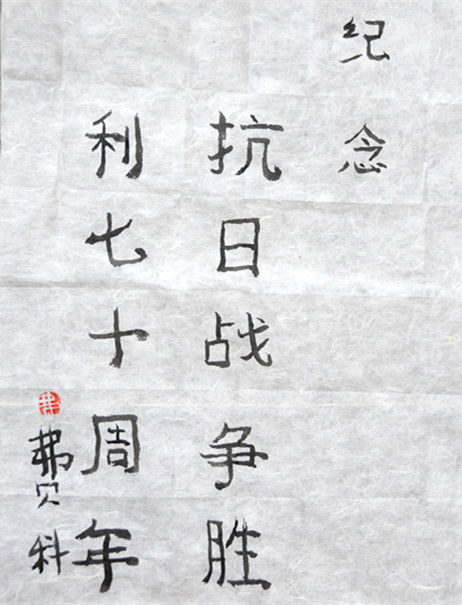 纪念
抗日战争胜
利七十周年
弗贝科